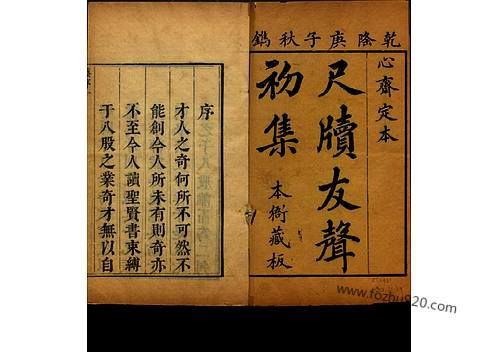 乾隆庚子秋鐫
心齋定本
尺牘友聲
初集
本衙藏板
序
才人之奇何所不可然不
能創今人所未有則奇亦
不至今人讀聖賢書束縛
于八股之業奇才無以自
www.fozhu920.com